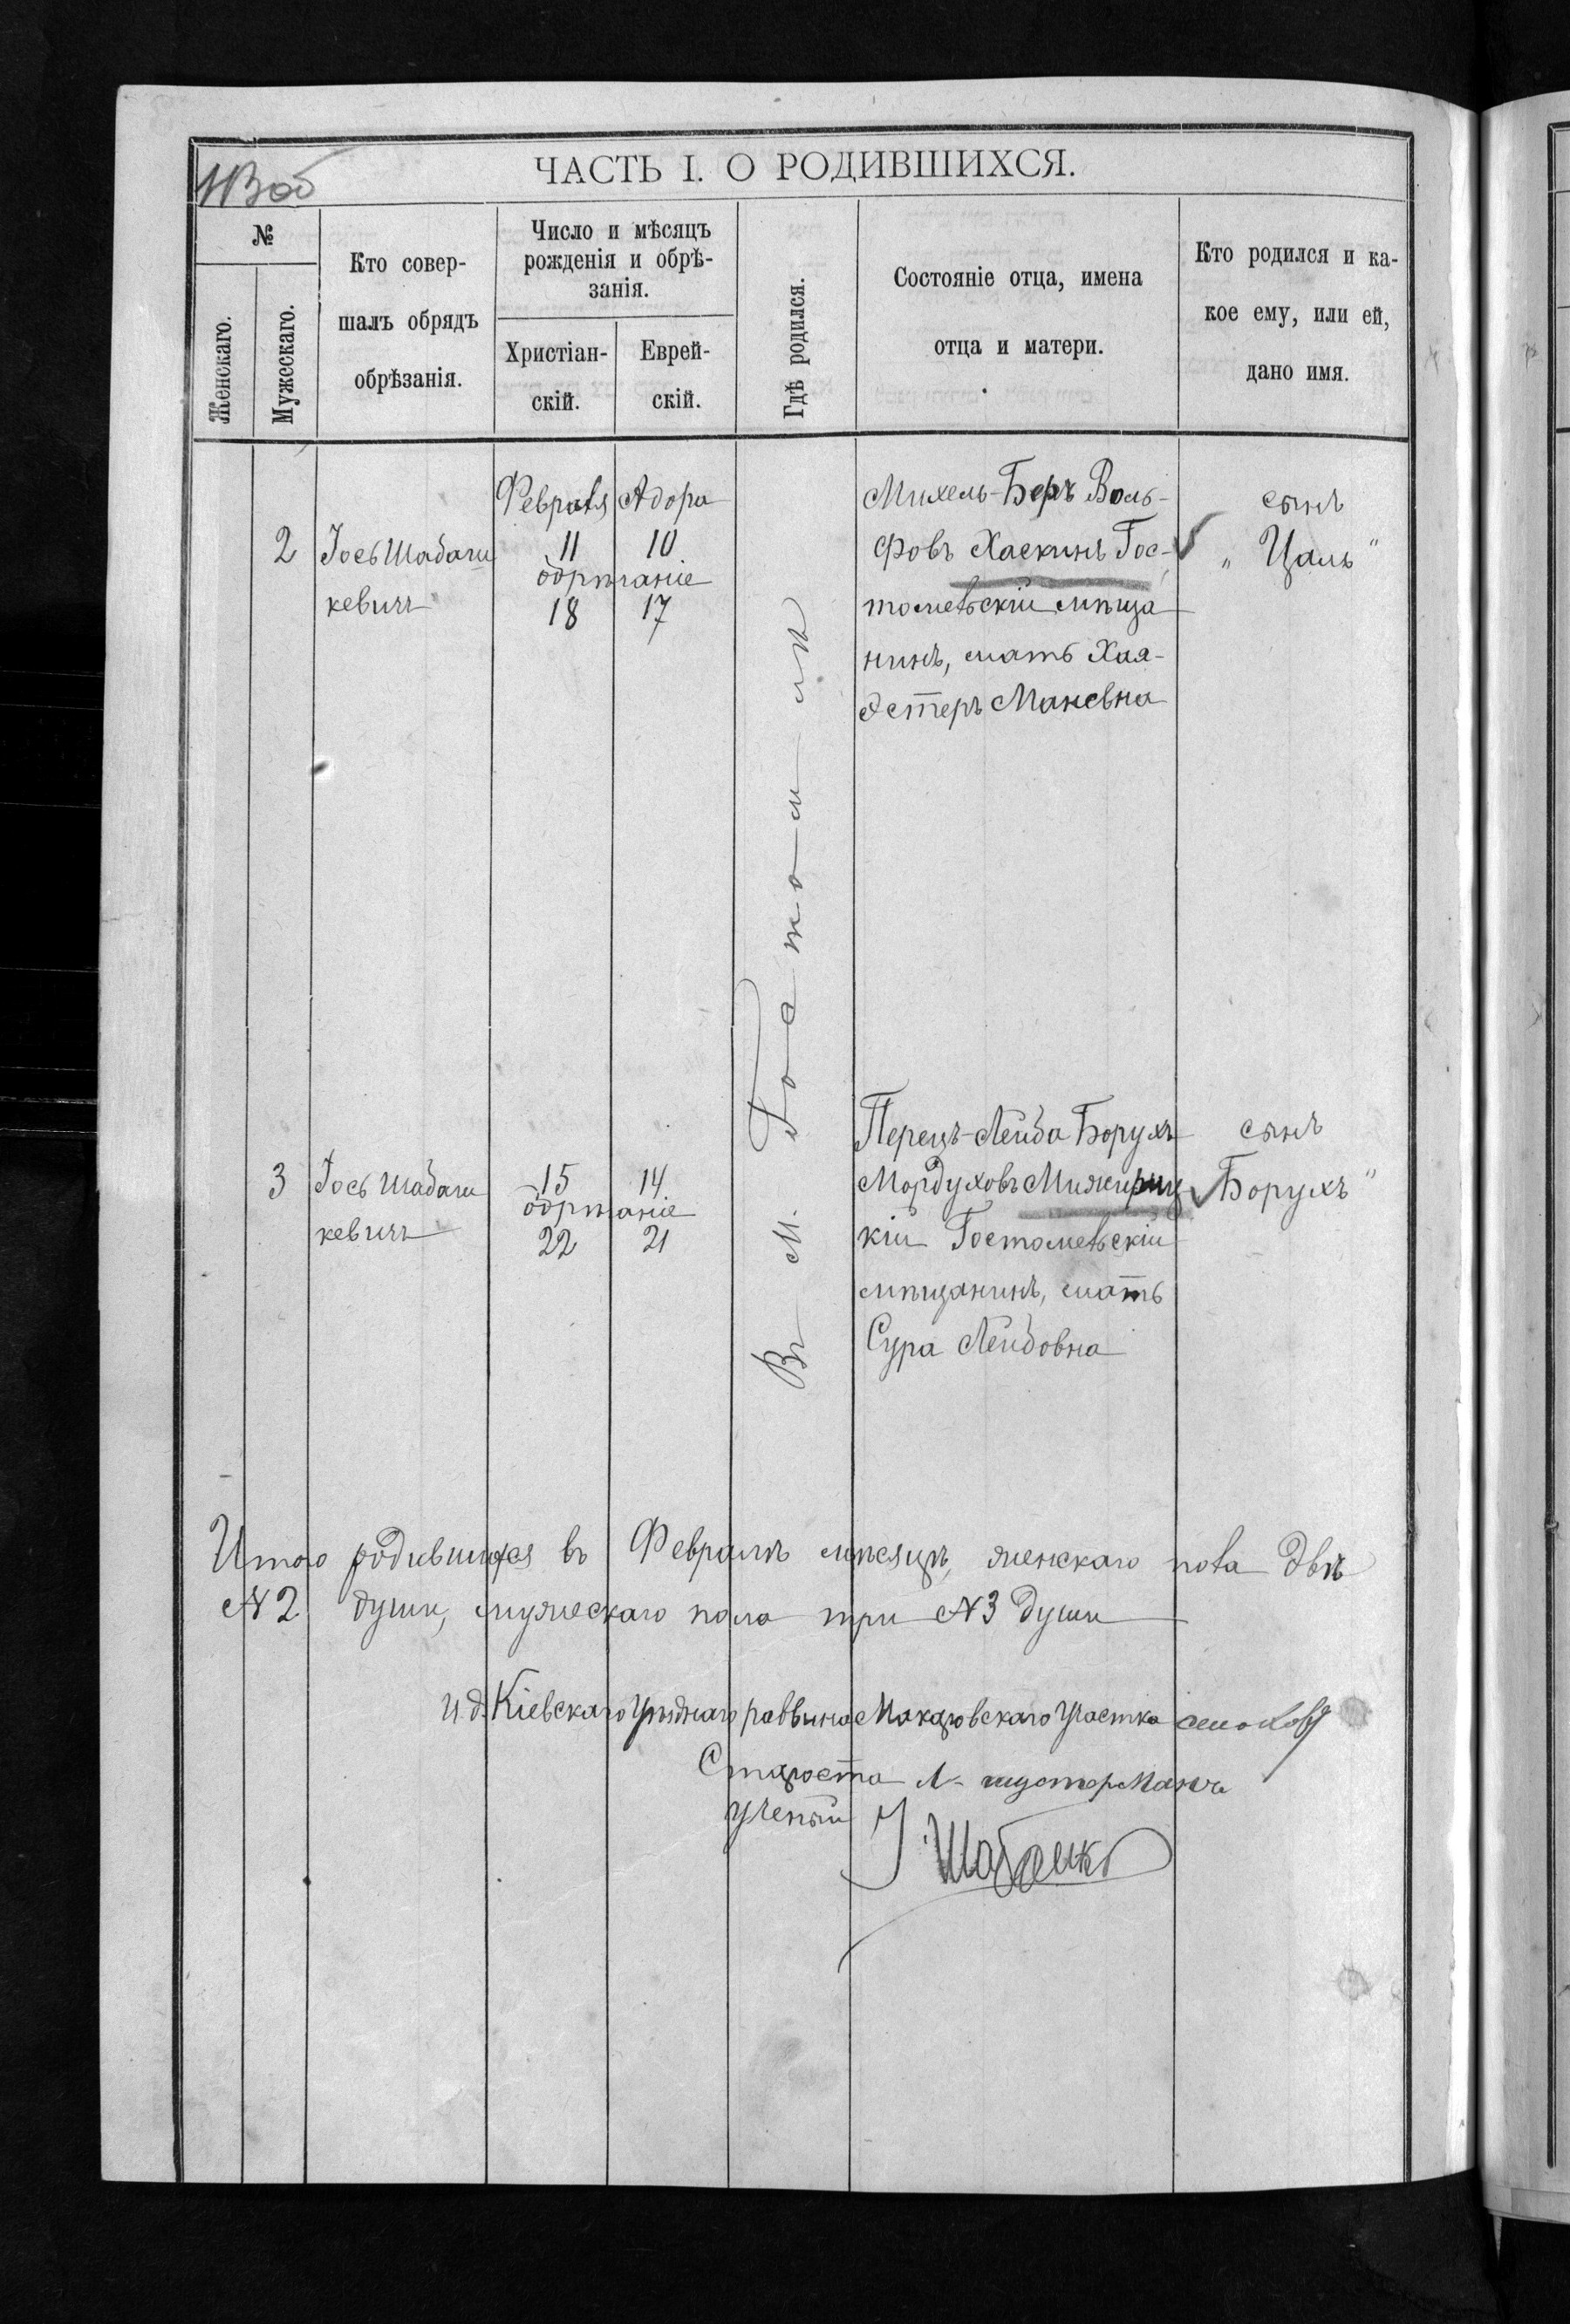 ЧАСТЬ I. О РОДИВШИХСЯ.
№
Женскаго.
Мужескаго.
Кто совер-
шалъ обрядъ
обрѣзанія.
Число и мѣсяцъ
рожденія и обрѣ-
занія.
Христіан-
скій.
Еврей-
скій.
Гдѣ родился.
Состояніе отца, имена
отца и матери.
Кто родился и ка-
кое ему, или ей,
дано имя.
Февраля Адора
2 Іось Шабаш
кевичъ
11 10
обрѣзаніе
18 17
Михель-Беръ Воль-
фовъ Хаскинъ Гос-
томельскій мѣща
нинъ, мать Хая-
Эстеръ Маневна
сынъ
„Цаль"
Въ М. Гостомлѣ
3 Іось Шабаш
кевичъ
15 14
обрѣзаніе
22 21
Перецъ-Лейба Борухъ
Мордуховъ Мижириц
кій Гостомельскій
мѣщанинъ, мать
Сура Лейбовна
сынъ
Борухъ"
Итого родившихся въ Февралѣ мѣсяцѣ, женскаго пола двѣ
№ 2 души, мужескаго пола три № 3 души
И. д. Кіевскаго Уѣзднаго раввина Макаровскаго Участка
Староста Л. шустерманъ
Ученый